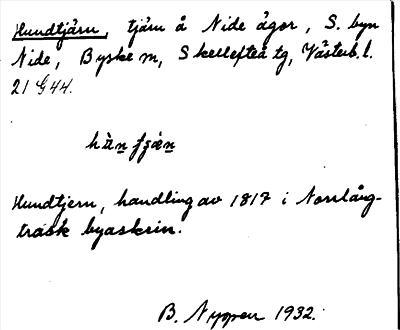 Hundtjärn, tjärn å Nide ägor, S. byn
Nide, Byske m, Skellefteå tg, Västerb. l.
21 G 44.
hùn̲ fjæn̲
Hundtjern, handling av 1817 i Norrlång-
träsk byaskrin.
B. Nyman 1932.